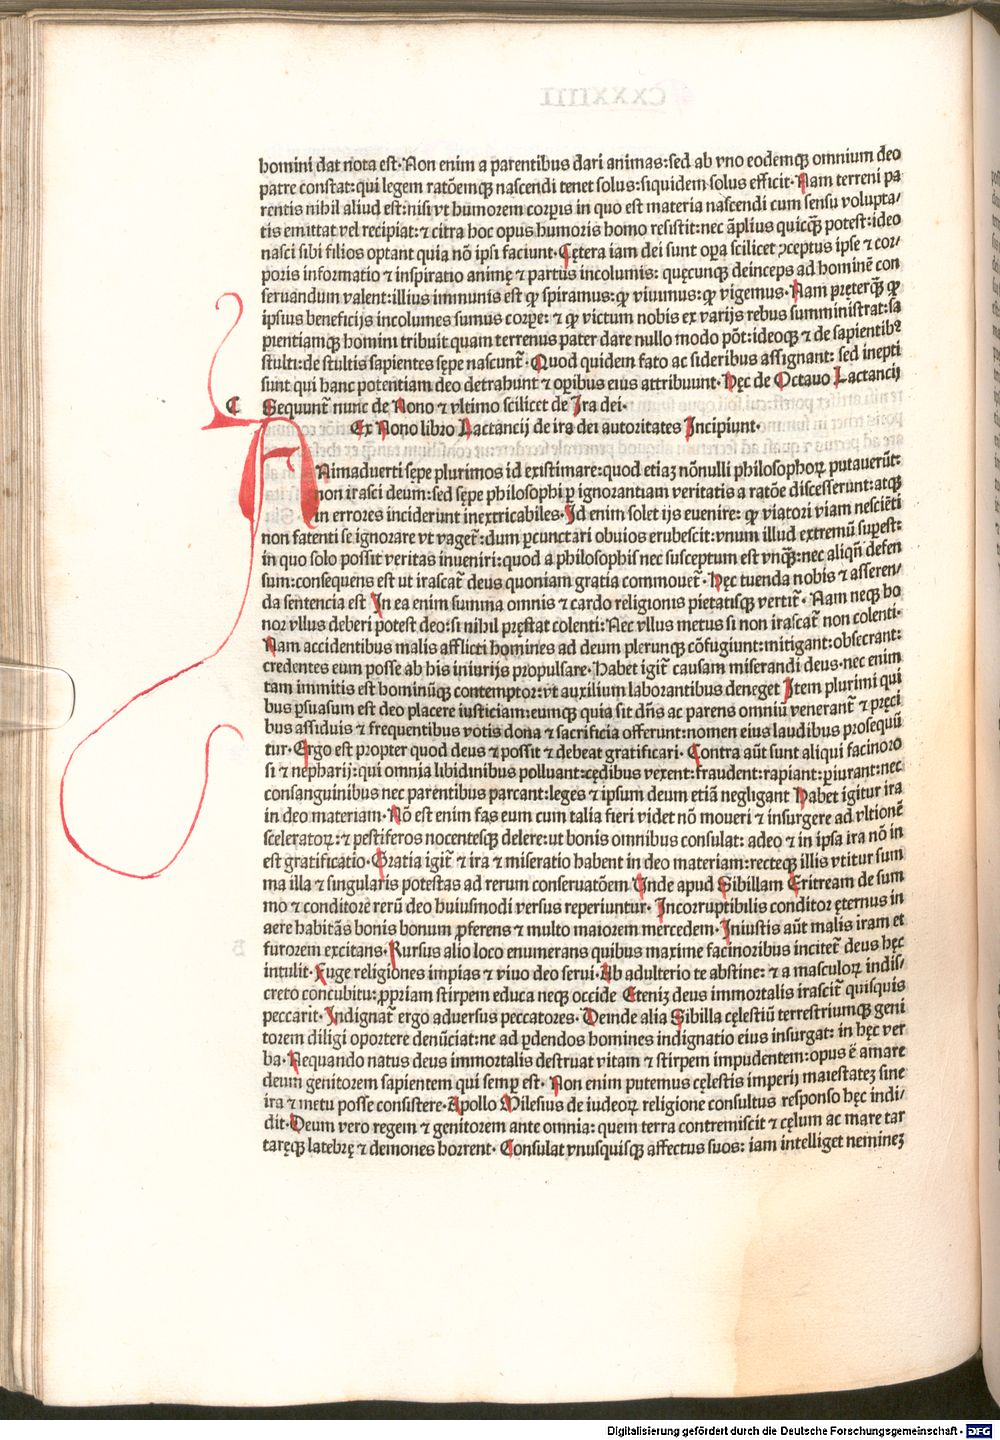 homini dat nota est. Non enim a parentibus dari animas: sed ab vno eodemqꝫ omnium deo
patre constat: qui legem ratōemqꝫ nascendi tenet solus: siquidem solus efficit. Nam terreni pa
rentis nihil aliud est: nisi vt humorem corpꝭis in quo est materia nascendi cum sensu volupta/
tis emittat vel recipiat: ⁊ citra hoc opus humoris homo resistit: nec āplius quicqꝫ̄ potest: ideo
nasci sibi filios optant quia nō ipsi faciunt. Cętera iam dei sunt opa scilicet ↄceptus ipse ⁊ cor/
poris informatio ⁊ inspiratio animę ⁊ partus incolumis: quęcunqꝫ deinceps ad hominē con
seruandum valent: illius immunis est qꝙ spiramus: qꝙ viuimus: qꝙ vigemus. Nam pręterqꝫ̄ qꝙ
ipsius beneficijs incolumes sumus corpꝑe: ⁊ qꝙ victum nobis ex varijs rebus summinístrat: sa
pientiamqꝫ homini tribuit quam terrenus pater dare nullo modo pōt: ideoqꝫ ⁊ de sapientibꝰ
stulti: de stultis sapientes sępe nascunt᷑. Quod quidem fato ac sideribus assignant: sed inepti
sunt qui hanc potentiam deo detrahunt ⁊ opibus eius attribuunt. Hęc de Octauo Lactancij
C Sequunt᷑ nunc de Nono ⁊ vltimo scilicet de Ira dei.
Ex Nono libro Lactancij de ira dei autoritates Incipiunt.
ANimaduerti sępe plurimos id existimare: quod etiaꝫ nōnulli philosophoꝝ putauerūt:
non irasci deum: sed sępe philosophi ꝑ ignorantiam veritatis a ratōe discesserunt: atqꝫ
in errores inciderunt inextricabiles. Id enim solet ijs euenire: qꝙ viatori viam nesciēti
non fatenti se ignorare vt vaget᷑: dum ꝑcunctari obuios erubescit: vnum illud extremū supest:
in quo solo possit veritas inueniri: quod a philosophis nec susceptum est vnqꝫ̄: nec aliqñ defen
sum: consequens est ut irascat᷑ deus quoniam gratia commouet᷑. Hęc tuenda nobis ⁊ asseren/
da sentencia est In ea enim summa omnis ⁊ cardo religionis pietatisqꝫ vertit᷑. Nam neqꝫ ho
nor vllus deberi potest deo: si nihil pręstat colenti: Nec vllus metus si non irascat᷑ non colenti.
Nam accidentibus malis afflicti homines ad deum plerunqꝫ cōfugiunt: mitigant: obsecrant:
credentes eum posse ab his iniurijs propulsare. Habet igit᷑ causam miserandi deus. nec enim
tam immitis est hominūqꝫ contemptor: vt auxilium laborantibus deneget Item plurimi qui
bus ꝑsuasum est deo placere iusticiam: eumqꝫ quia sit dn̄s ac parens omniū venerant᷑ ⁊ pręci
bus assiduis ⁊ frequentibus votis dona ⁊ sacrificia offerunt: nomen eius laudibus prosequū
tur. Ergo est propter quod deus ⁊ possit ⁊ debeat gratificari. Contra aūt sunt aliqui facinoro
si ⁊ nepharij: qui omnia libidinibus polluant: cędibus vexent: fraudent: rapiant: piurant: nec
consanguinibus nec parentibus parcant: leges ⁊ ipsum deum etiā negligant Habet igitur ira
in deo materiam. Nō est enim fas eum cum talia fieri videt nō moueri ⁊ insurgere ad vltionē
sceleratoꝝ: ⁊ pestiferos nocentesqꝫ delere: ut bonis omnibus consulat: adeo ⁊ in ipsa ira nō in
est gratificatio. Gratia igit᷑ ⁊ ira ⁊ miseratio habent in deo materiam: recteqꝫ illis vtitur sum
ma illa ⁊ singularis potestas ad rerum conseruatōem Unde apud Sibillam Eritream de sum
mo ⁊ conditore rerū deo huiusmodi versus reperiuntur. Incorruptibilis conditor ęternus in
aere habitās bonis bonum ꝓferens ⁊ multo maiorem mercedem. Iniustis aūt malis iram et
furorem excitans. Rursus alio loco enumerans quibus maxime facinoribus incitet᷑ deus hęc
intulit. Fuge religiones impias ⁊ viuo deo serui. Ab adulterio te abstine: ⁊ a masculoꝝ indis/
creto concubitu: ꝓpriam stirpem educa neqꝫ occide Eteniꝫ deus immortalis irascit᷑ quisquis
peccarit. Indignat᷑ ergo aduersus peccatores. Deinde alia Sibilla cęlestiū terrestriumqꝫ geni
torem diligi oportere denūciat: ne ad ꝑdendos homines indignatio eius insurgat: in hęc ver
ba. Nequando natus deus immortalis destruat vitam ⁊ stirpem impudentem: opus ē amare
deum genitorem sapientem qui semꝑ est. Non enim putemus cęlestis imperij maiestateꝫ sine
ira ⁊ metu posse consistere. Apollo Milesius de iudeoꝝ religione consultus responso hęc indi/
dit. Deum vero regem ⁊ genitorem ante omnia: quem terra contremiscit ⁊ cęlum ac mare tar
taręqꝫ latebrę ⁊ demones horrent. Consulat vnusquisqꝫ affectus suos: iam intelliget nemineꝫ
Digitalisierung gefördert durch die Deutsche Forschungsgemeinschaft - DFG